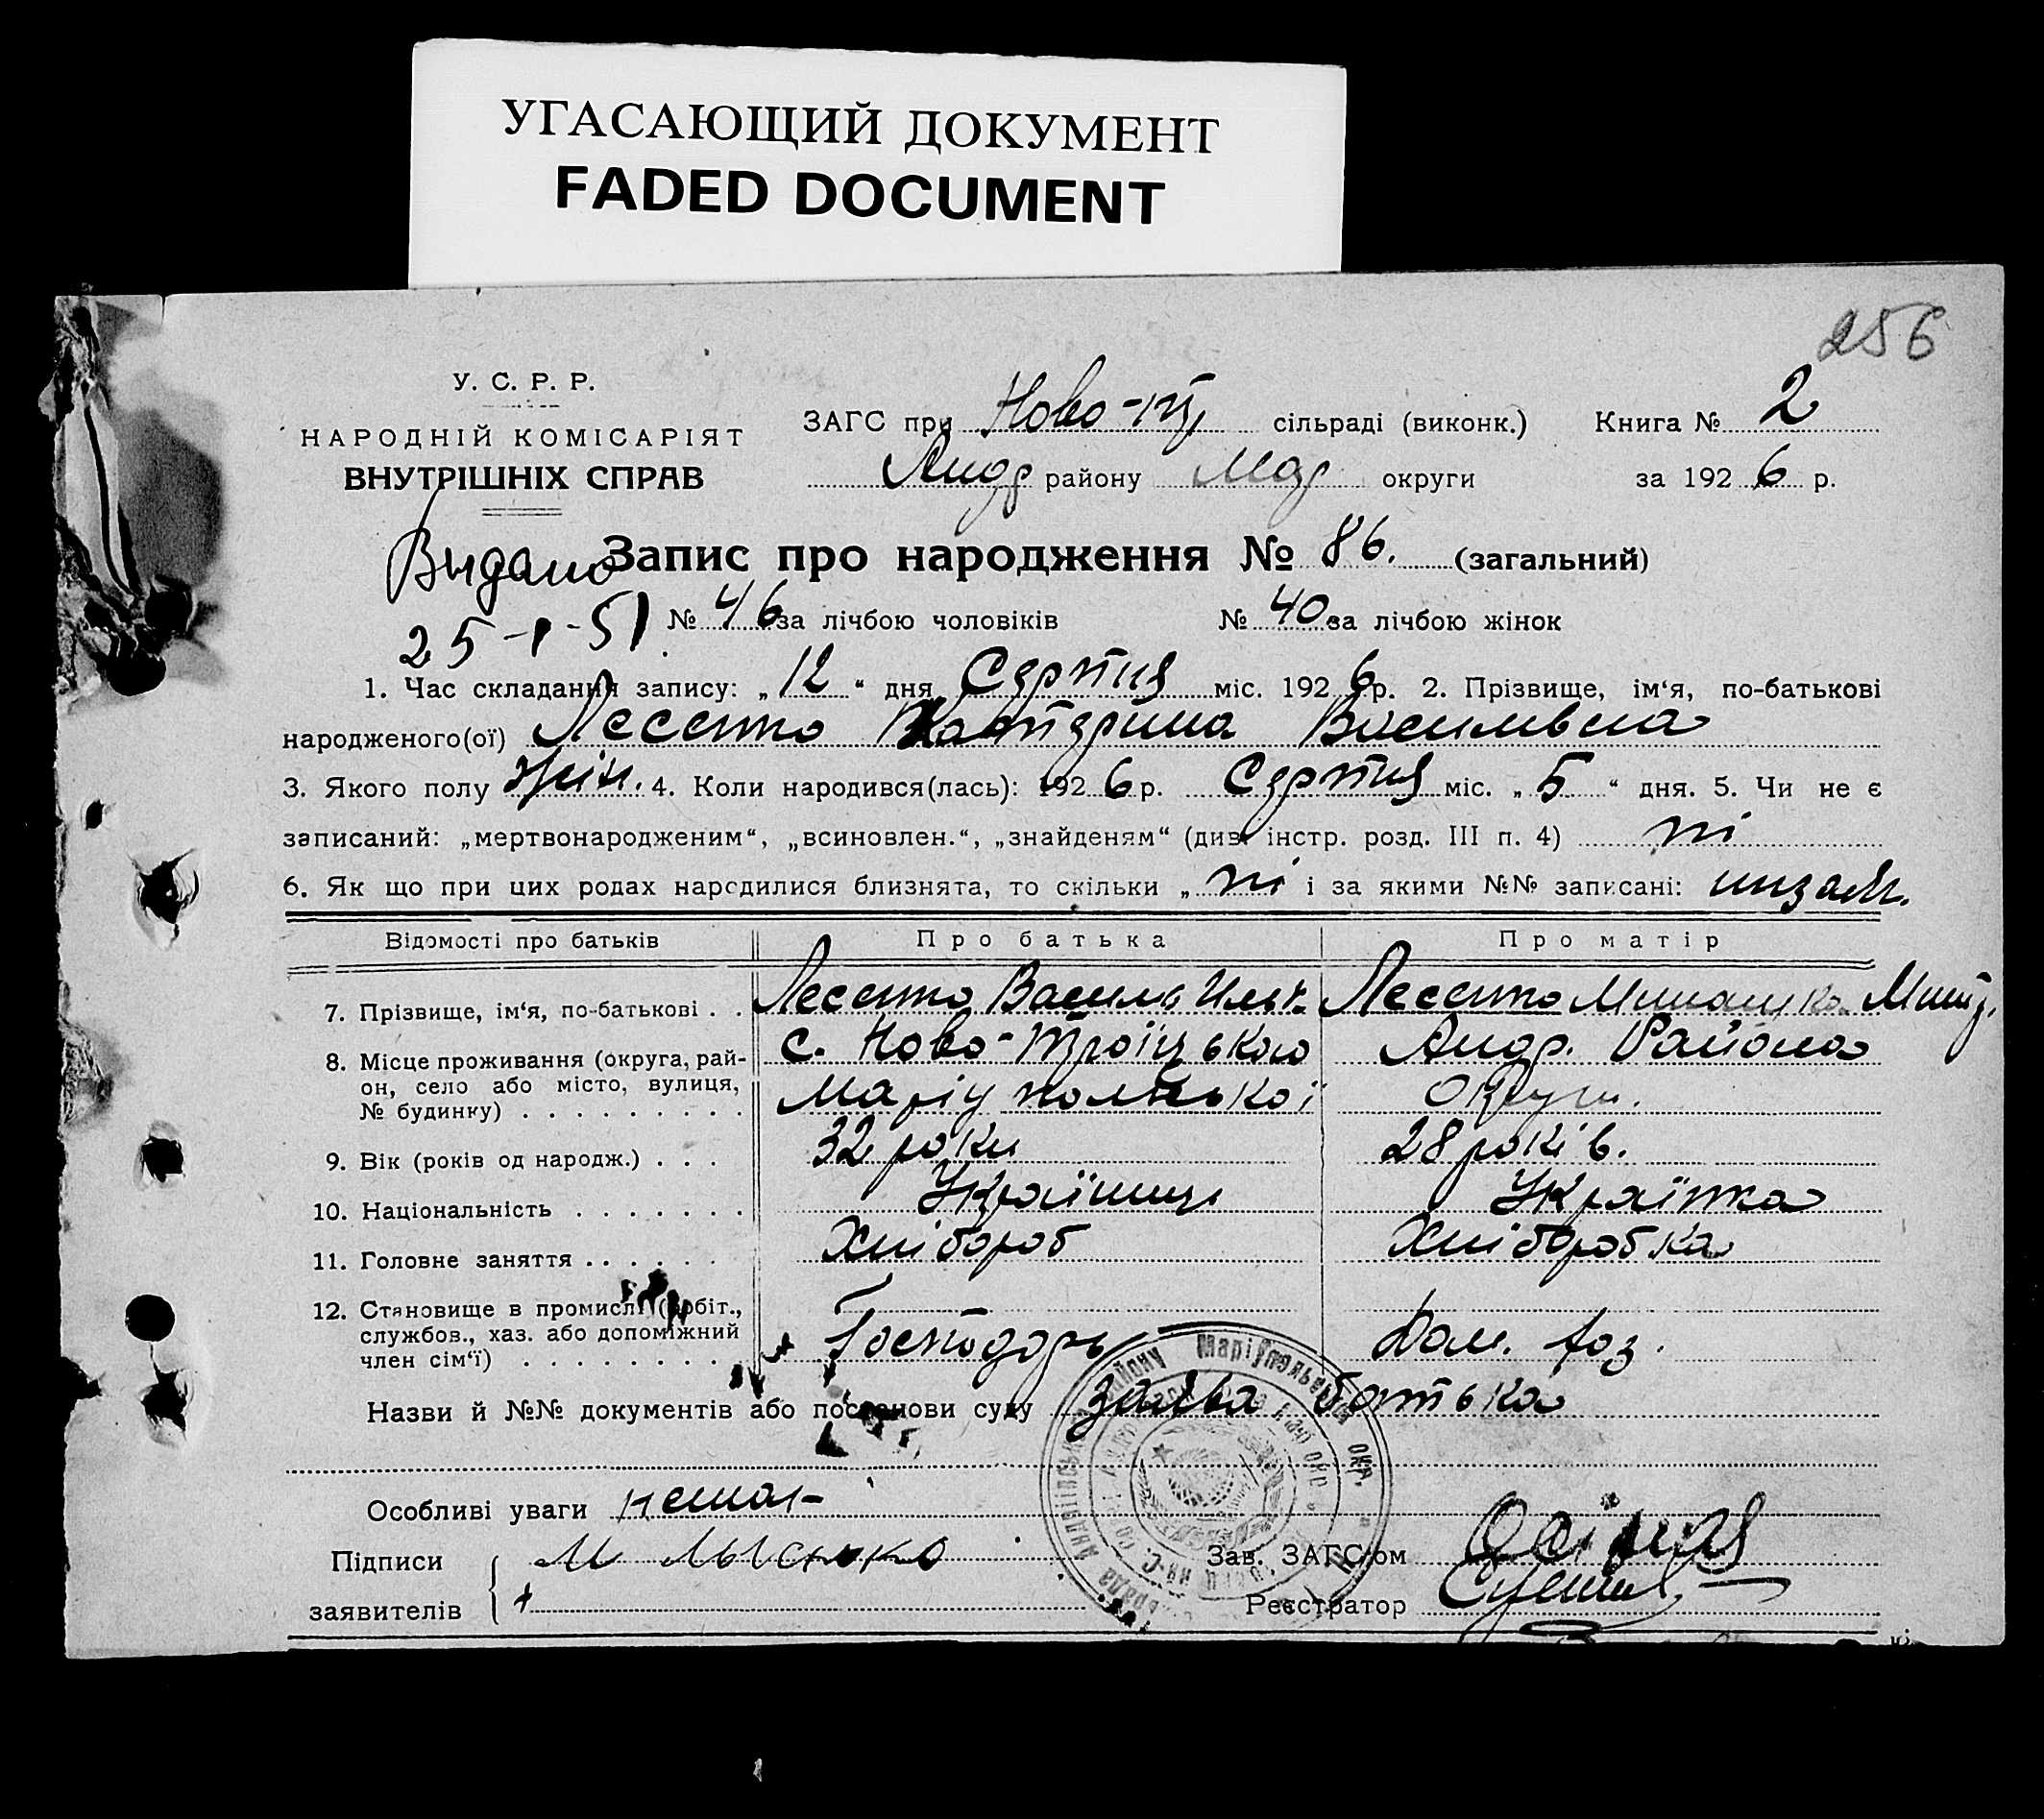 УГАСАЮЩИЙ ДОКУМЕНТ
FADED DOCUMENT
256
У. С. Р. Р.
НАРОДНІЙ КОМІСАРІЯТ
ВНУТРІШНІХ СПРАВ
ЗАГС при Ново-Тр сільраді (виконк.) Книга № 2
Андр району Мар округи за 1926 р.
Выдано
25-1-51
Запис про народження № 86. (загальний)
№ 46 за лічбою чоловіків № 40 за лічбою жінок
1. Час складання запису: „12“ дня Серпня міс. 1926 р. 2. Прізвище, ім‘я, по-батькові
народженого(ої) Катерина Васильвна
3. Якого полу жін. 4. Коли народився(лась): 1926 р. Серпня міс. „5“ дня. 5. Чи не є
записаний: „мертвонародженим“, „всиновлен.“, „знайденям“ (див. інстр. розд. III п. 4) ні
6. Як що при цих родах народилися близнята, то скільки „ ні і за якими №№ записані:
Відомості про батьків Про батька Про матір
7. Прізвище, ім‘я, по-батькові . . Василь
8. Місце проживання (округа, рай-
он, село або місто, вулиця,
№ будинку) . . . . . . . . .
с. Ново-Троїцького Андр. Района
Маріупольської Округи.
9. Вік (років од народж.) . . . 32 роки 28 років.
10. Національність . . . . . . . Українець Українка
11. Головне заняття . . . . . . Хлібороб Хліборобка
12. Становище в промислі (робіт.,
службов., хаз. або допоміжний
член сім‘ї) . . . . . . . .
Господарь Дом. хоз.
Назви й №№ документів або постанови суду заява батька
Особливі уваги немає
Підписи
заявителів
Зав. ЗАГС‘ом
Реєстратор